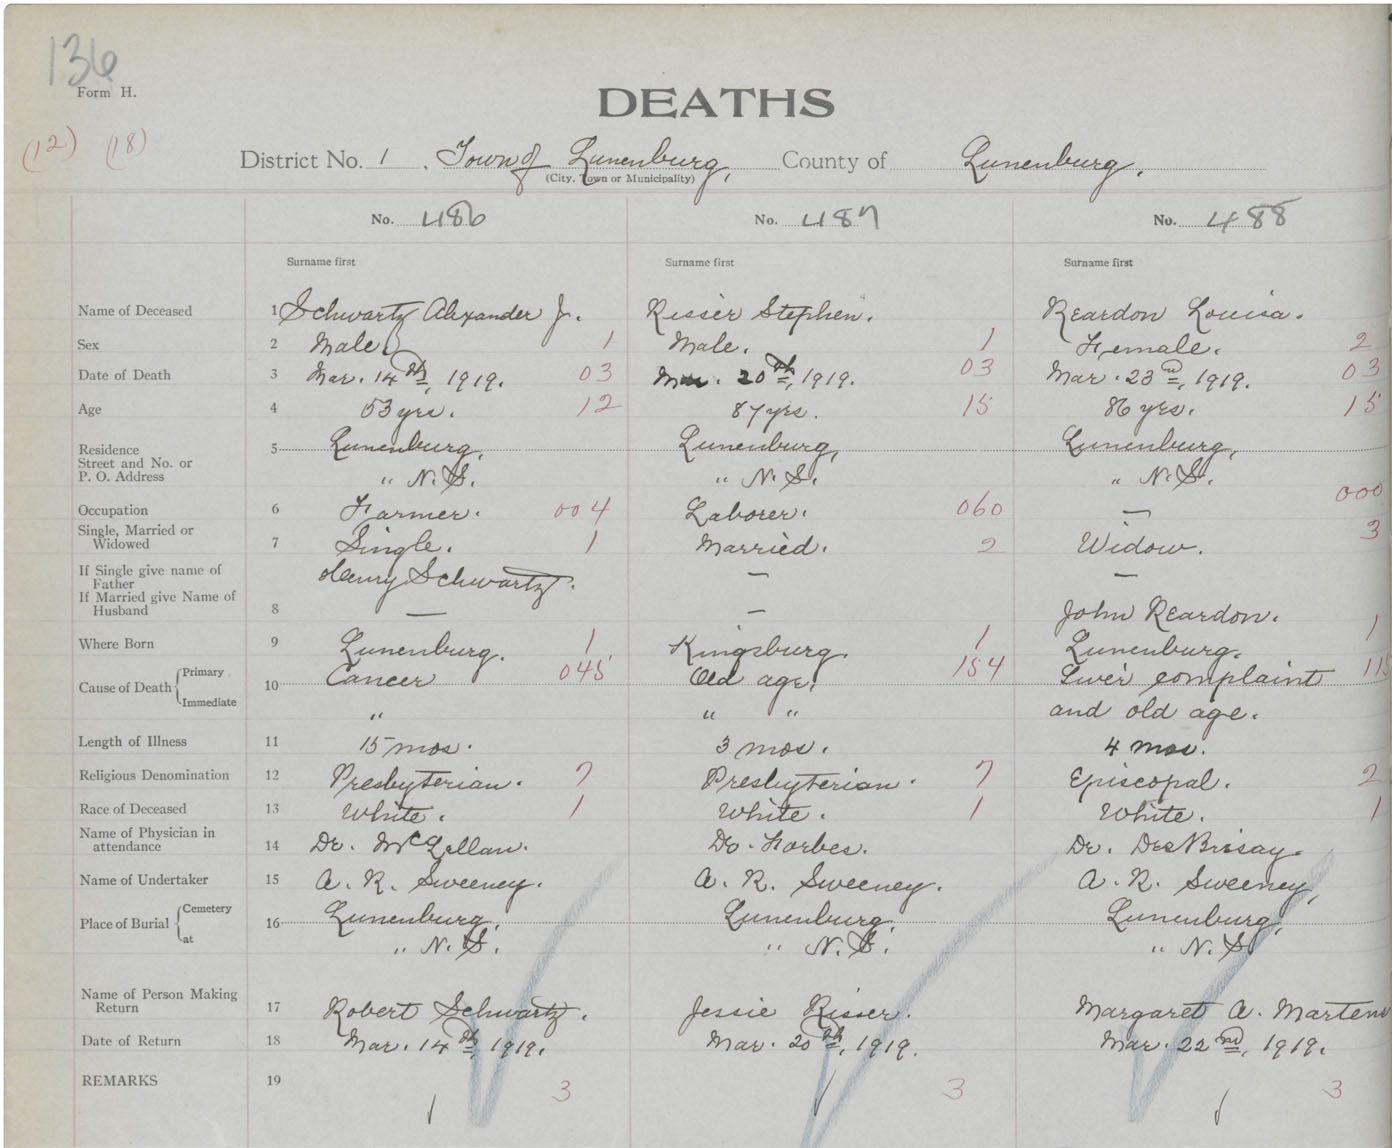 136
Form H.
DEATHS
(12) (18)
District No. 1. Town of Lunenburg, County of Lunenburg.
(City, Town or Municipality)
No. 486 No. 487 No. 488
Surname first Surname first Surname first
Name of Deceased 1 Schwartz Alexander J. Risser Stephen. Reardon Louisa.
Sex 2 Male. 1 Male. 1 Female. 2
Date of Death 3 Mar. 14th, 1919. 03 Mar. 20th, 1919. 03 Mar. 23rd, 1919. 03
Age 4 53 yrs. 12 87 yrs. 15 86 yrs. 15
Residence 5 Lunenburg, Lunenburg, Lunenburg,
Street and No. or
P. O. Address " N.S. " N.S. " N.S.
Occupation 6 Farmer. 004 Laborer. 060 — 000
Single, Married or
Widowed 7 Single. 1 Married. 2 Widow. 3
If Single give name of
Father Henry Schwartz. — —
If Married give Name of
Husband 8 — — John Reardon.
Where Born 9 Lunenburg. 1 Kingsburg. 1 Lunenburg. 1
Cause of Death { Primary 10 Cancer 045 Old age. 154 Liver complaint 115
Immediate " " " and old age.
Length of Illness 11 15 mos. 3 mos. 4 mos.
Religious Denomination 12 Presbyterian. 7 Presbyterian. 7 Episcopal. 2
Race of Deceased 13 White. 1 White. 1 White. 1
Name of Physician in
attendance 14 Dr. McLellan. Do. Forbes. Dr. DesBrisay.
Name of Undertaker 15 A. R. Sweeney. A. R. Sweeney. A. R. Sweeney,
Place of Burial { Cemetery 16 Lunenburg, Lunenburg, Lunenburg,
at " N.S. " N.S. " N.S.
Name of Person Making
Return 17 Robert Schwartz. Jessie Risser. Margaret A. Martens
Date of Return 18 Mar. 14th, 1919. Mar. 20th, 1919. Mar. 22nd, 1919.
REMARKS 19 3 3 3